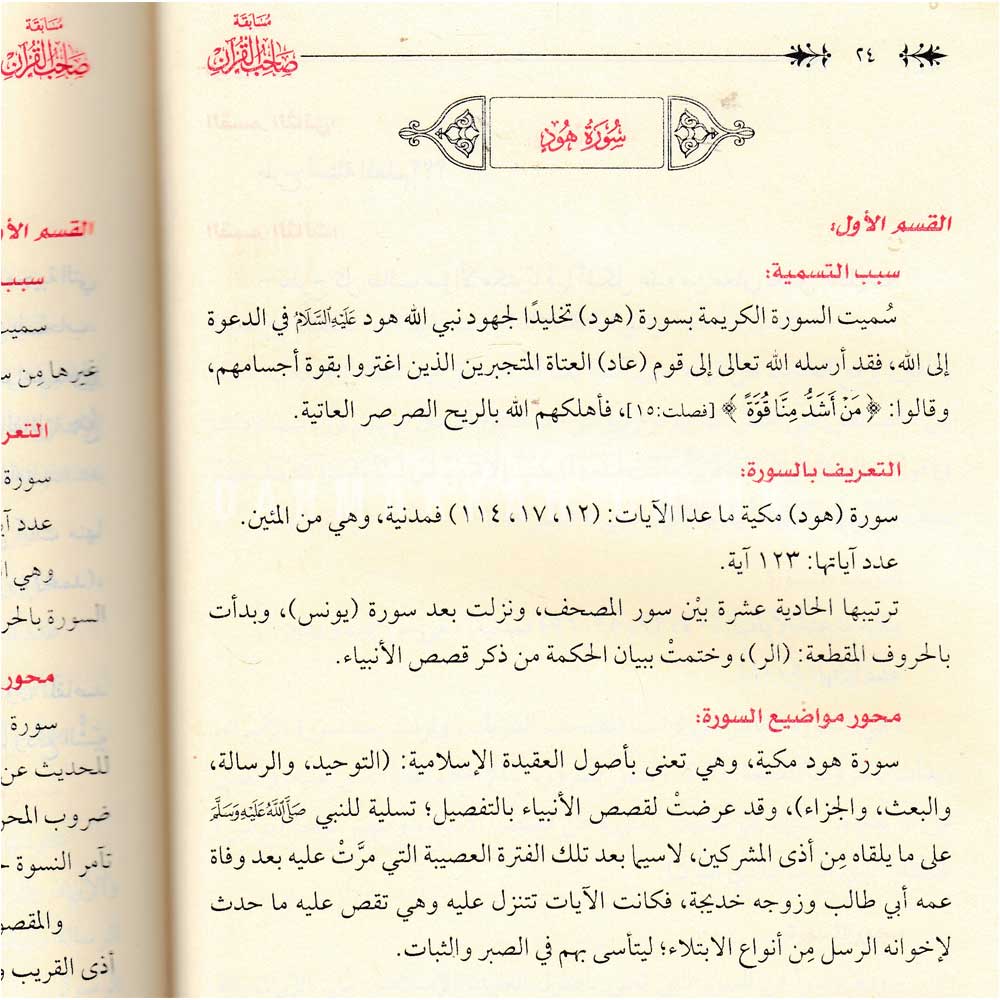 مسابقة
صاحب القرآن
٢٤
سُورَةُ هُودٍ
القسم الأول:
سبب التسمية:
سُميت السورة الكريمة بسورة (هود) تخليدًا لجهود نبي الله هود عَلَيْهِ السَّلَامُ في الدعوة
إلى الله، فقد أرسله الله تعالى إلى قوم (عاد) العتاة المتجبرين الذين اغتروا بقوة أجسامهم،
وقالوا: ﴿مَنْ أَشَدُّ مِنَّا قُوَّةً﴾ [فصلت:١٥]، فأهلكهم الله بالريح الصرصر العاتية.
التعريف بالسورة:
سورة (هود) مكية ما عدا الآيات: (١٢، ١٧، ١١٤) فمدنية، وهي من المئين.
عدد آياتها: ١٢٣ آية.
ترتيبها الحادية عشرة بيْن سور المصحف، ونزلت بعد سورة (يونس)، وبدأت
بالحروف المقطعة: (الر)، وختمتْ ببيان الحكمة من ذكر قصص الأنبياء.
محور مواضيع السورة:
سورة هود مكية، وهي تعنى بأصول العقيدة الإسلامية: (التوحيد، والرسالة،
والبعث، والجزاء)، وقد عرضتْ لقصص الأنبياء بالتفصيل؛ تسلية للنبي صَلَّى اللَّهُ عَلَيْهِ وَسَلَّمَ
على ما يلقاه مِن أذى المشركين، لاسيما بعد تلك الفترة العصيبة التي مرَّتْ عليه بعد وفاة
عمه أبي طالب وزوجه خديجة، فكانت الآيات تتنزل عليه وهي تقص عليه ما حدث
لإخوانه الرسل مِن أنواع الابتلاء؛ ليتأسى بهم في الصبر والثبات.
مسابقة
صاحب القرآن
القسم الأو
سبب
سميت
غيرها مِن س
التعر
سورة
عدد آي
وهي ا
السورة بالحر
محور
سورة
للحديث عن
ضروب المحن
تآمر النسوة
والمقصو
أذى القريب و